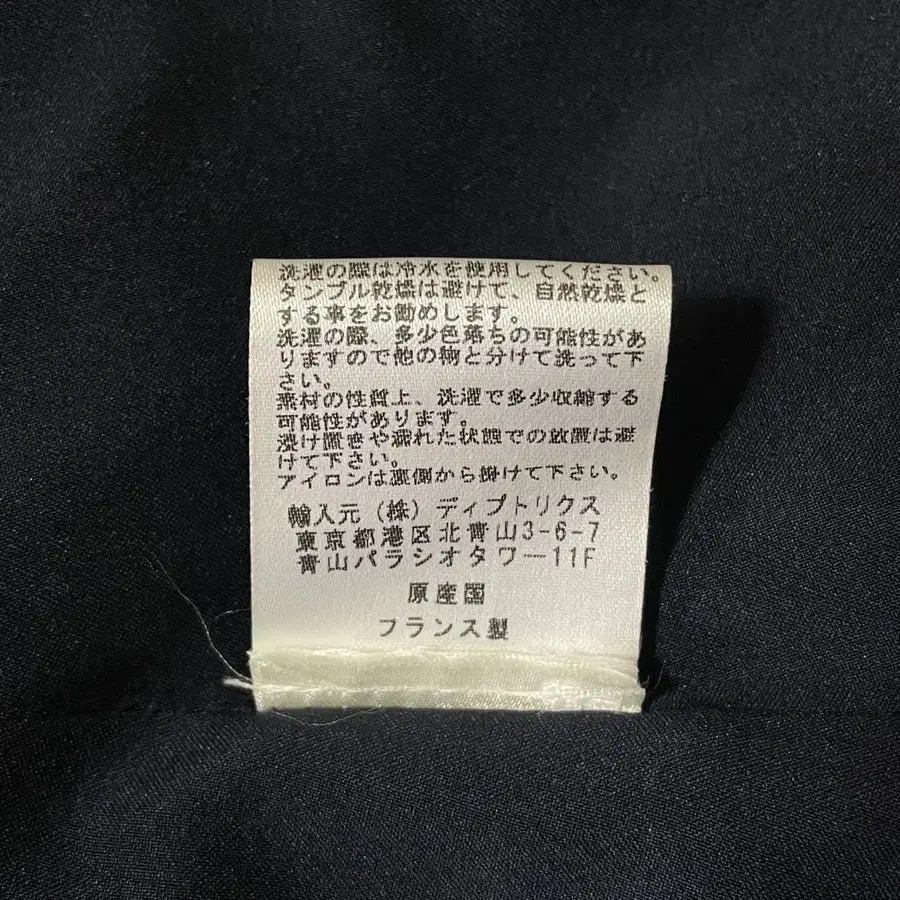 洗濯の際は冷水を使用してください。
タンブル乾燥は避けて、自然乾燥と
する事をお勧めします。
洗濯の際、多少色落ちの可能性があ
りますので他の物と分けて洗って下
さい。
素材の性質上、洗濯で多少収縮する
可能性があります。
浸け置きや濡れた状態での放置は避
けて下さい。
アイロンは裏側から掛けて下さい。
輸入元（株）ディプトリクス
東京都港区北青山3-6-7
青山パラシオタワー11F
原産国
フランス製